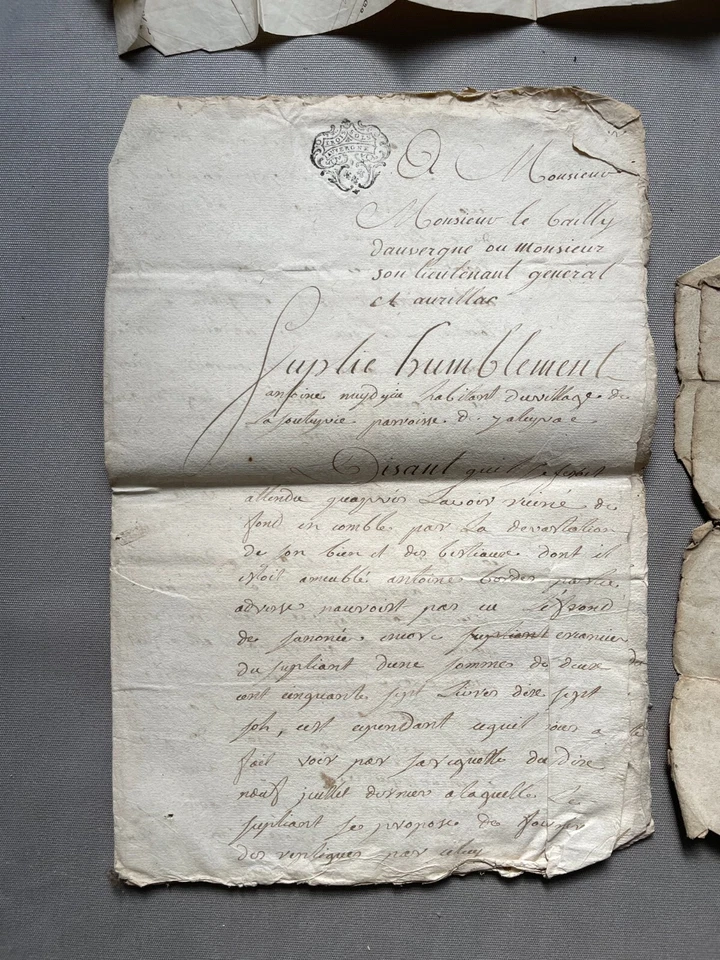 TROIS SOLS
AUVERGNE
A Monsieur
Monsieur le bailly
dauvergne ou monsieur
son lieutenant general
a aurillac
Suplie humblement
antoine habitant du village de
parroisse de
Disant quil
attendu quaprés Lavoir ruiné de
fond en comble par La devastation
de son bien et des bestiaux dont il
étoit ameublé antoine bordes partie
adverse nauroit pas eu
de encore supliant creancier
du supliant dune somme de deux
cent cinquante sept Livres dix sept
sols, cest cependant cequil
fait voir par sa requette du dix
neuf juillet dernier a laquelle Le
supliant se propose de fournir
des repliques par